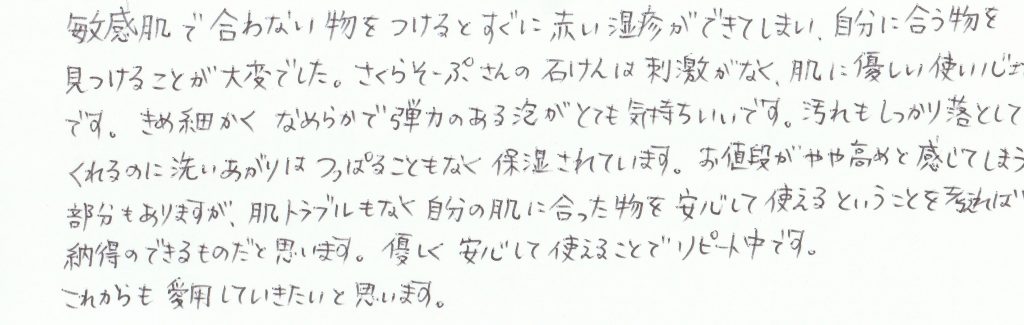 敏感肌で合わない物をつけるとすぐに赤い湿疹ができてしまい、自分に合う物を
見つけることが大変でした。さくらそーぷさんの石けんは刺激がなく、肌に優しい使い心
です。きめ細かくなめらかで弾力のある泡がとても気持ちいいです。汚れもしっかり落として
くれるのに洗いあがりはつっぱることもなく保湿されています。お値段がやや高めと感じてしまう
部分もありますが、肌トラブルもなく自分の肌に合った物を安心して使えるということを考えれば
納得のできるものだと思います。優しく安心して使えることでリピート中です。
これからも愛用していきたいと思います。